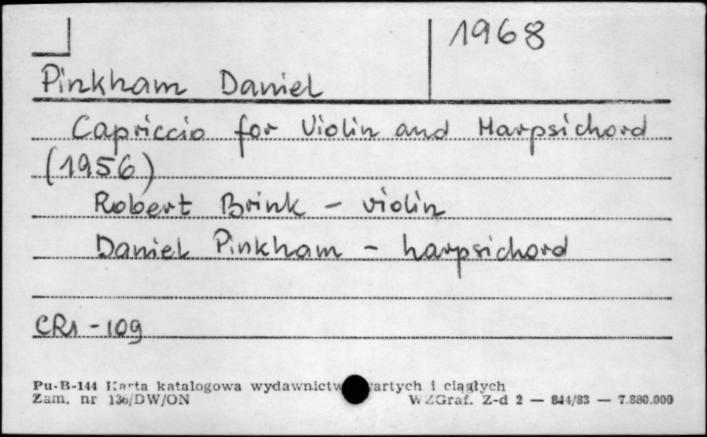 1968
Pinkham Daniel
Capriccio for Violin and Harpsichord
(1956)
Robert Brink - violin
Daniel Pinkham - harpsichord
CR1-109
Pu-B-144 Karta katalogowa wydawnictw zwartych i ciągłych
Zam. nr 136/DW/ON WZGraf. Z-d 2 — 844/83 — 7.880.000